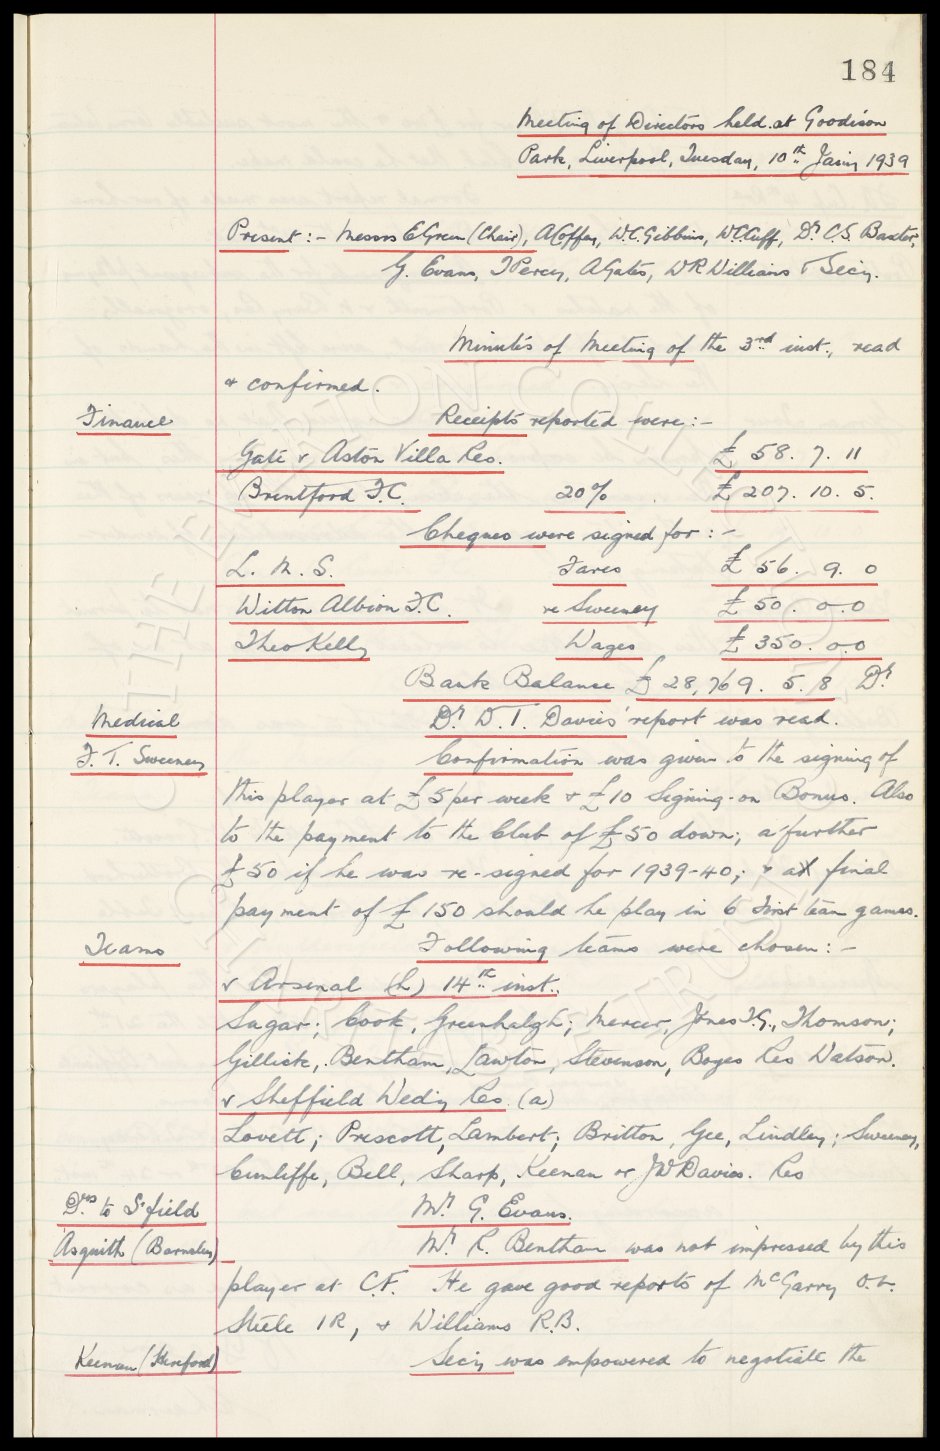 184
Meeting of Directors held at Goodison
Park, Liverpool, Tuesday, 10th Jany 1939
Present :- Messrs E Green (Chair), A Coffey, W.C. Gibbins, W C Cuff, Dr C.S. Baxter,
G. Evans, J Percy, A Gates, W R Williams & Secy.
Minutes of Meeting of the 3rd inst., read
& confirmed.
Finance Receipts reported were :-
Gate v Aston Villa Res. £ 58. 7. 11
Brentford F.C. 20% £ 207. 10. 5.
Cheques were signed for :-
L. M. S. Fares £ 56. 9. 0
Witton Albion F.C. re Sweeney £ 50. 0.0
Theo Kelly Wages £ 350. 0.0
Bank Balance £ 28,769. 5. 8 Dr
Medical Dr D. T. Davies' report was read.
F. T. Sweeney Confirmation was given to the signing of
this player at £5 per week & £10 Signing-on Bonus. Also
to the payment to the Club of £50 down; a further
£50 if he was re-signed for 1939-40; & a final
payment of £150 should he play in 6 First team games.
Teams Following teams were chosen :-
v Arsenal (h) 14th inst.
Sagar; Cook, Greenhalgh; Mercer, Jones T.G., Thomson;
Gillick, Bentham, Lawton, Stevenson, Boyes Res Watson.
v Sheffield Wedy Res. (a)
Lovett; Prescott, Lambert; Britton, Gee, Lindley; Sweeney,
Cunliffe, Bell, Sharp, Keenan or J W Davies. Res
Drs to S'field Mr G. Evans.
Asquith (Barnsley) Mr R. Bentham was not impressed by this
player at C.F. He gave good reports of McGarry O.L.
Steele IR, & Williams R.B.
Keenan (Hereford) Secy was empowered to negotiate the
THE EVERTON COLLECTION
CHARITABLE TRUST